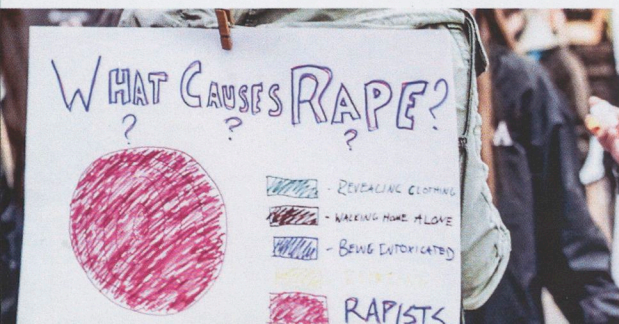 WHAT CAUSES RAPE?
? ? ?
- REVEALING CLOTHING
- WALKING HOME ALONE
- BEING INTOXICATED
RAPISTS